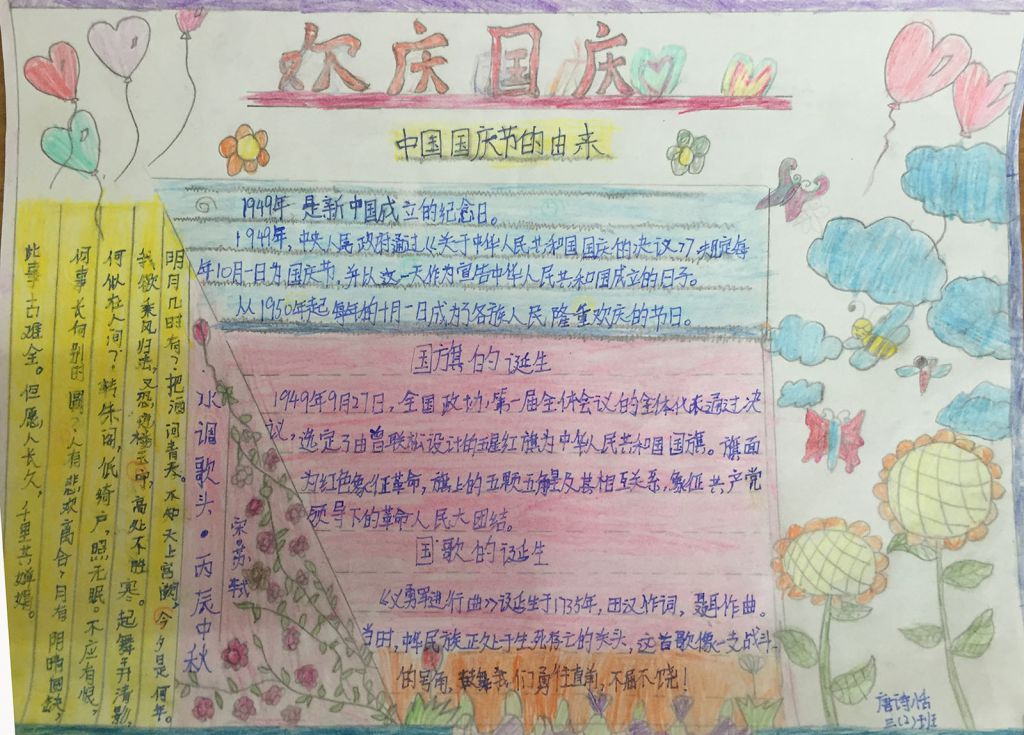 欢庆国庆
中国国庆节的由来
1949年是新中国成立的纪念日。
1949年,中央人民政府通过《关于中华人民共和国国庆的决议》了,规定每
年10月一日为国庆节,并以这一天作为宣告中华人民共和国成立的日子。
从1950年起每年的十月一日成为了各族人民隆重欢庆的节日。
国旗的诞生
1949年9月27日,全国政协第一届全体会议的全体代表通过决
议,选定了由曾联松设计的五星红旗为中华人民共和国国旗。旗面
为红色象征革命,旗上的五颗五角星及其相互关系,象征共产党
领导下的革命人民大团结。
国歌的诞生
《义勇军进行曲》诞生于1735年,田汉作词,聂耳作曲。
当时,中华民族正处于生死存亡的关头,这首歌像一支战斗
的号角,鼓舞我们勇往直前,不屈不饶!
水调歌头·丙辰中秋
宋苏轼
明月几时有?把酒问青天。不知天上宫阙,今夕是何年。
我欲乘风归去,又恐琼楼玉宇,高处不胜寒。起舞弄清影,
何似在人间?转朱阁,低绮户,照无眠。不应有恨,
何事长向别时圆?人有悲欢离合,月有阴晴圆缺,
此事古难全。但愿人长久,千里共婵娟。
唐诗恬
三(2)班